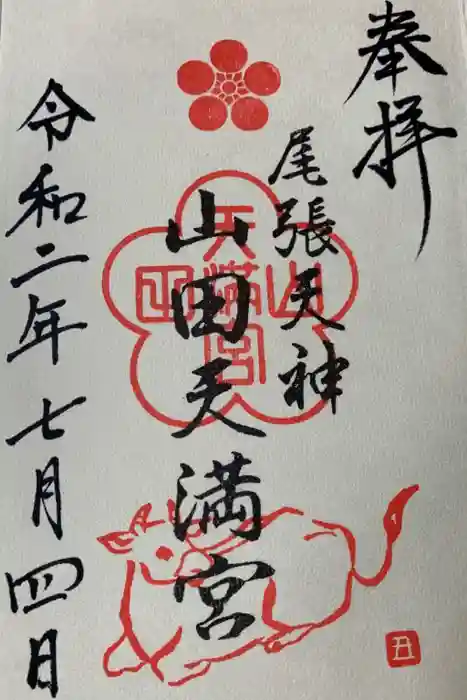 奉拝
尾張天神
山田天満宮
山田天満宮
令和二年七月四日
丑